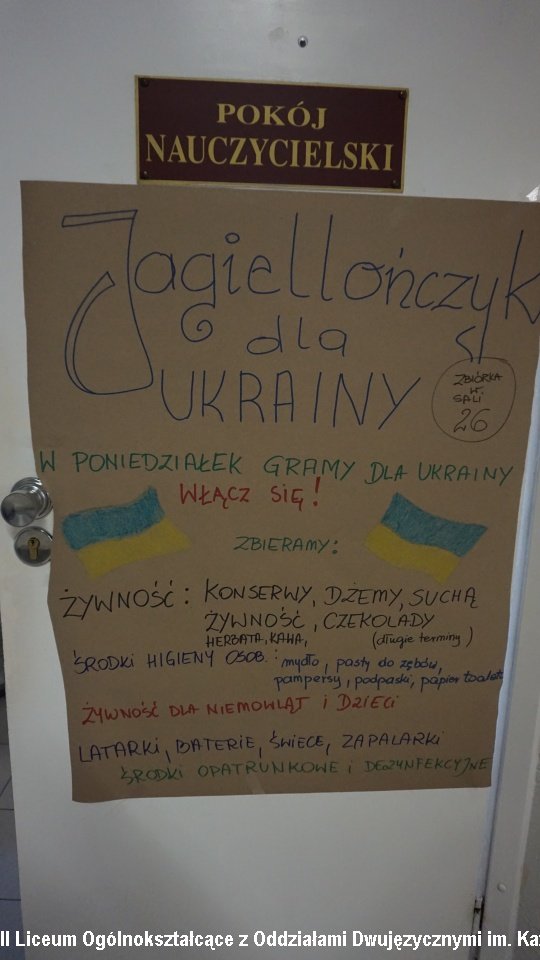 POKÓJ
NAUCZYCIELSKI
Jagiellończyk
dla
UKRAINY
ZBIÓRKA
W.
SALI
26
W PONIEDZIAŁEK GRAMY DLA UKRAINY
WŁĄCZ SIĘ!
ZBIERAMY:
ŻYWNOŚĆ: KONSERWY, DŻEMY, SUCHĄ
ŻYWNOŚĆ, CZEKOLADY
HERBATA, KAWA, (długie terminy)
ŚRODKI HIGIENY OSOB.: mydło, pasty do zębów,
pampersy, podpaski, papier toalet
ŻYWNOŚĆ DLA NIEMOWLĄT i DZIECI
LATARKI, BATERIE, ŚWIECE, ZAPALARKI
ŚRODKI OPATRUNKOWE i DEZYNFEKCYJNE
II Liceum Ogólnokształcące z Oddziałami Dwujęzycznymi im. Kaz